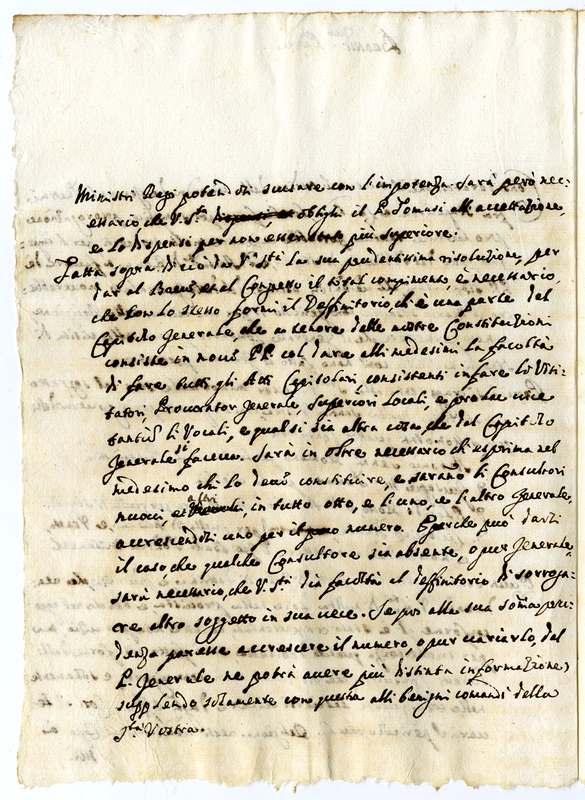 Ministri Regi potendosi scusare con l'impotenza. Sarà però nec:
essario, che V. Stà oblighi il P. Tomasi all'accettazione,
e lo dispensi per non essere stato più superiore.
Fatta sopra di ciò da V. Stà la sua prudentissima risoluzione, per
dar al Breve, et al Congresso il total compimento, è necessario,
che con lo stesso formi il Deffinitorio, ch'è una parte del
Capitolo Generale, che a tenore delle nostre Constitutioni
consiste in nove PP. col dare alli medesimi la facoltà
di fare tutti gli Atti Capitolari, consistenti in fare lo Visi:
tatori, Procurator Generale, Superiori Locali, e
li Vocali, e qual si sia altra cosa, che dal Capitolo
Generale si faceva. Sarà in oltre necessario ch'esprima nel
medesimo chi lo deve constituire, e saranno li Consultori
nuovi, et altri, in tutto otto, e l'uno, e l'altro Generale,
accrescendosi uno per il numero. E perche può darsi
il caso, che qualche Consultore sia absente, o pur Generale,
sarà necessario, che V. Stà dia facoltà al deffinitorio di sorroga:
re altro soggetto in sua vece. Se poi alla sua somma pru:
denza paresse accrescere il numero, o pur variarlo, dal
P. Generale ne potrà avere più distinta informazione,
supplendo solamente con questa alli benigni comandi della
Stà Vostra.